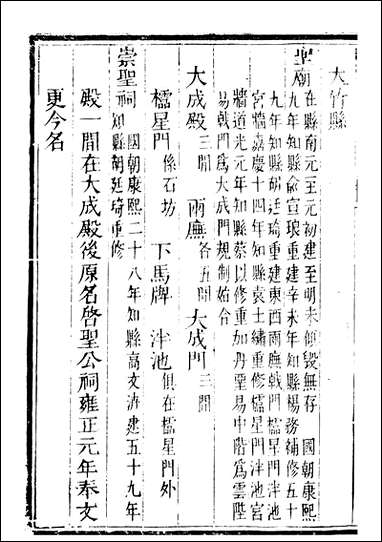 大竹縣
聖廟在縣南元至元初建至明末傾毀無存 國朝康熙
九年知縣俞宣琅重建辛未年知縣楊務補修五十
九年知縣胡廷琦重建東西兩廡戟門櫺星門泮池
宮牆嘉慶十四年知縣袁士繡重修櫺星門泮池宮
牆道光元年知縣蔡以修重加丹堊易中階爲雲陛
易戟門爲大成門規制始合
大成殿三間 兩廡各五間 大成門三間
櫺星門係石坊 下馬牌 泮池俱在櫺星門外
崇聖祠國朝康熙二十八年知縣高文濟建五十九年
知縣胡廷琦重修
殿一間在大成殿後原名啓聖公祠雍正元年奉文
更今名